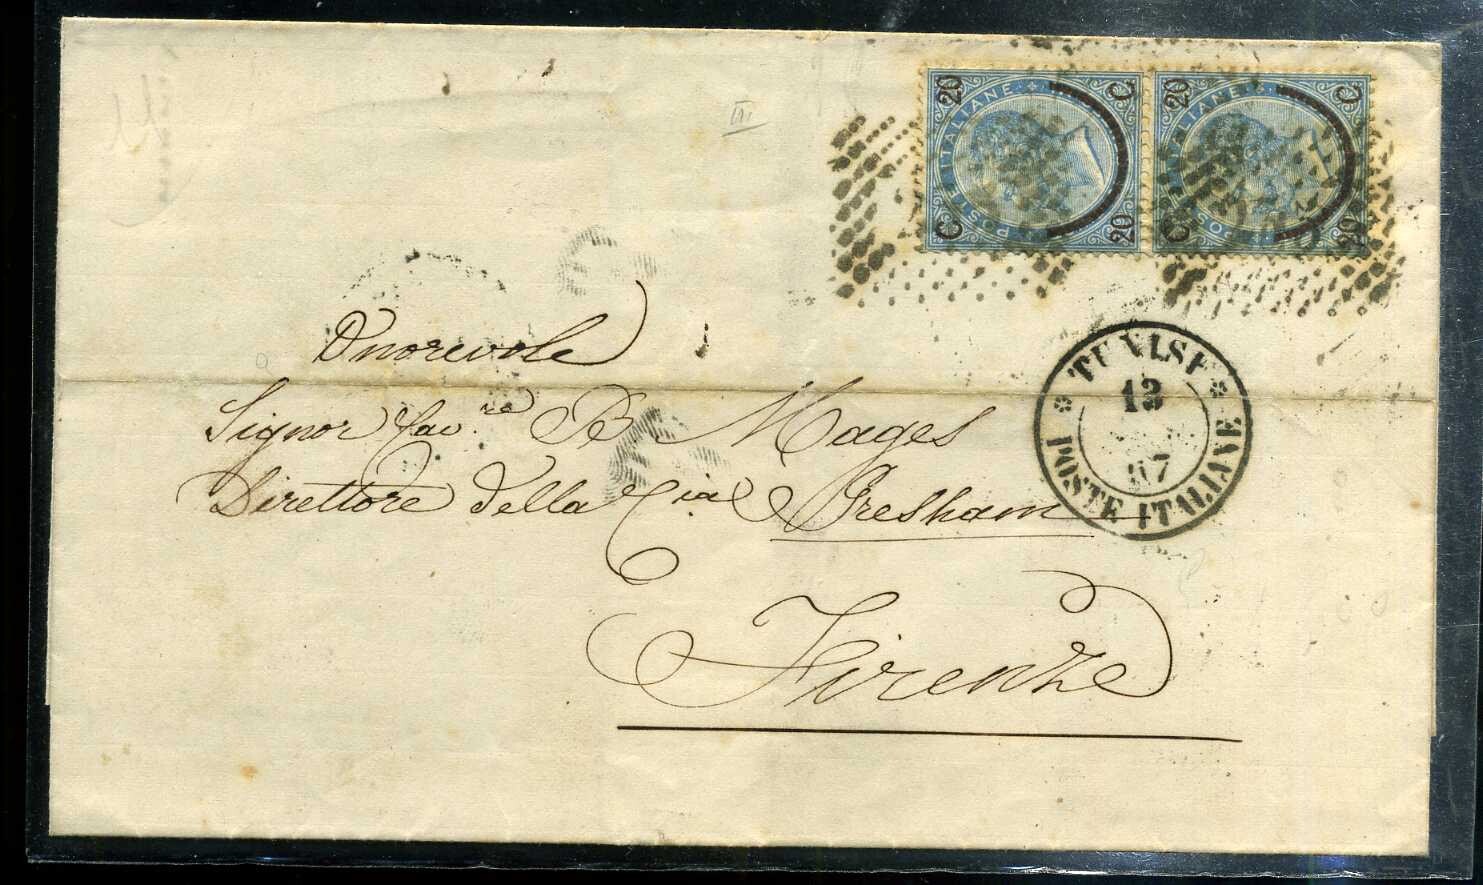 III
C. 20
POSTE ITALIANE
C. 20
C. 20
ITALIANE
C. 20
TUNISI
13
67
POSTE ITALIANE
Onorevole
Signor Cavre B Mages
Direttore della Cia Gresham
Firenze